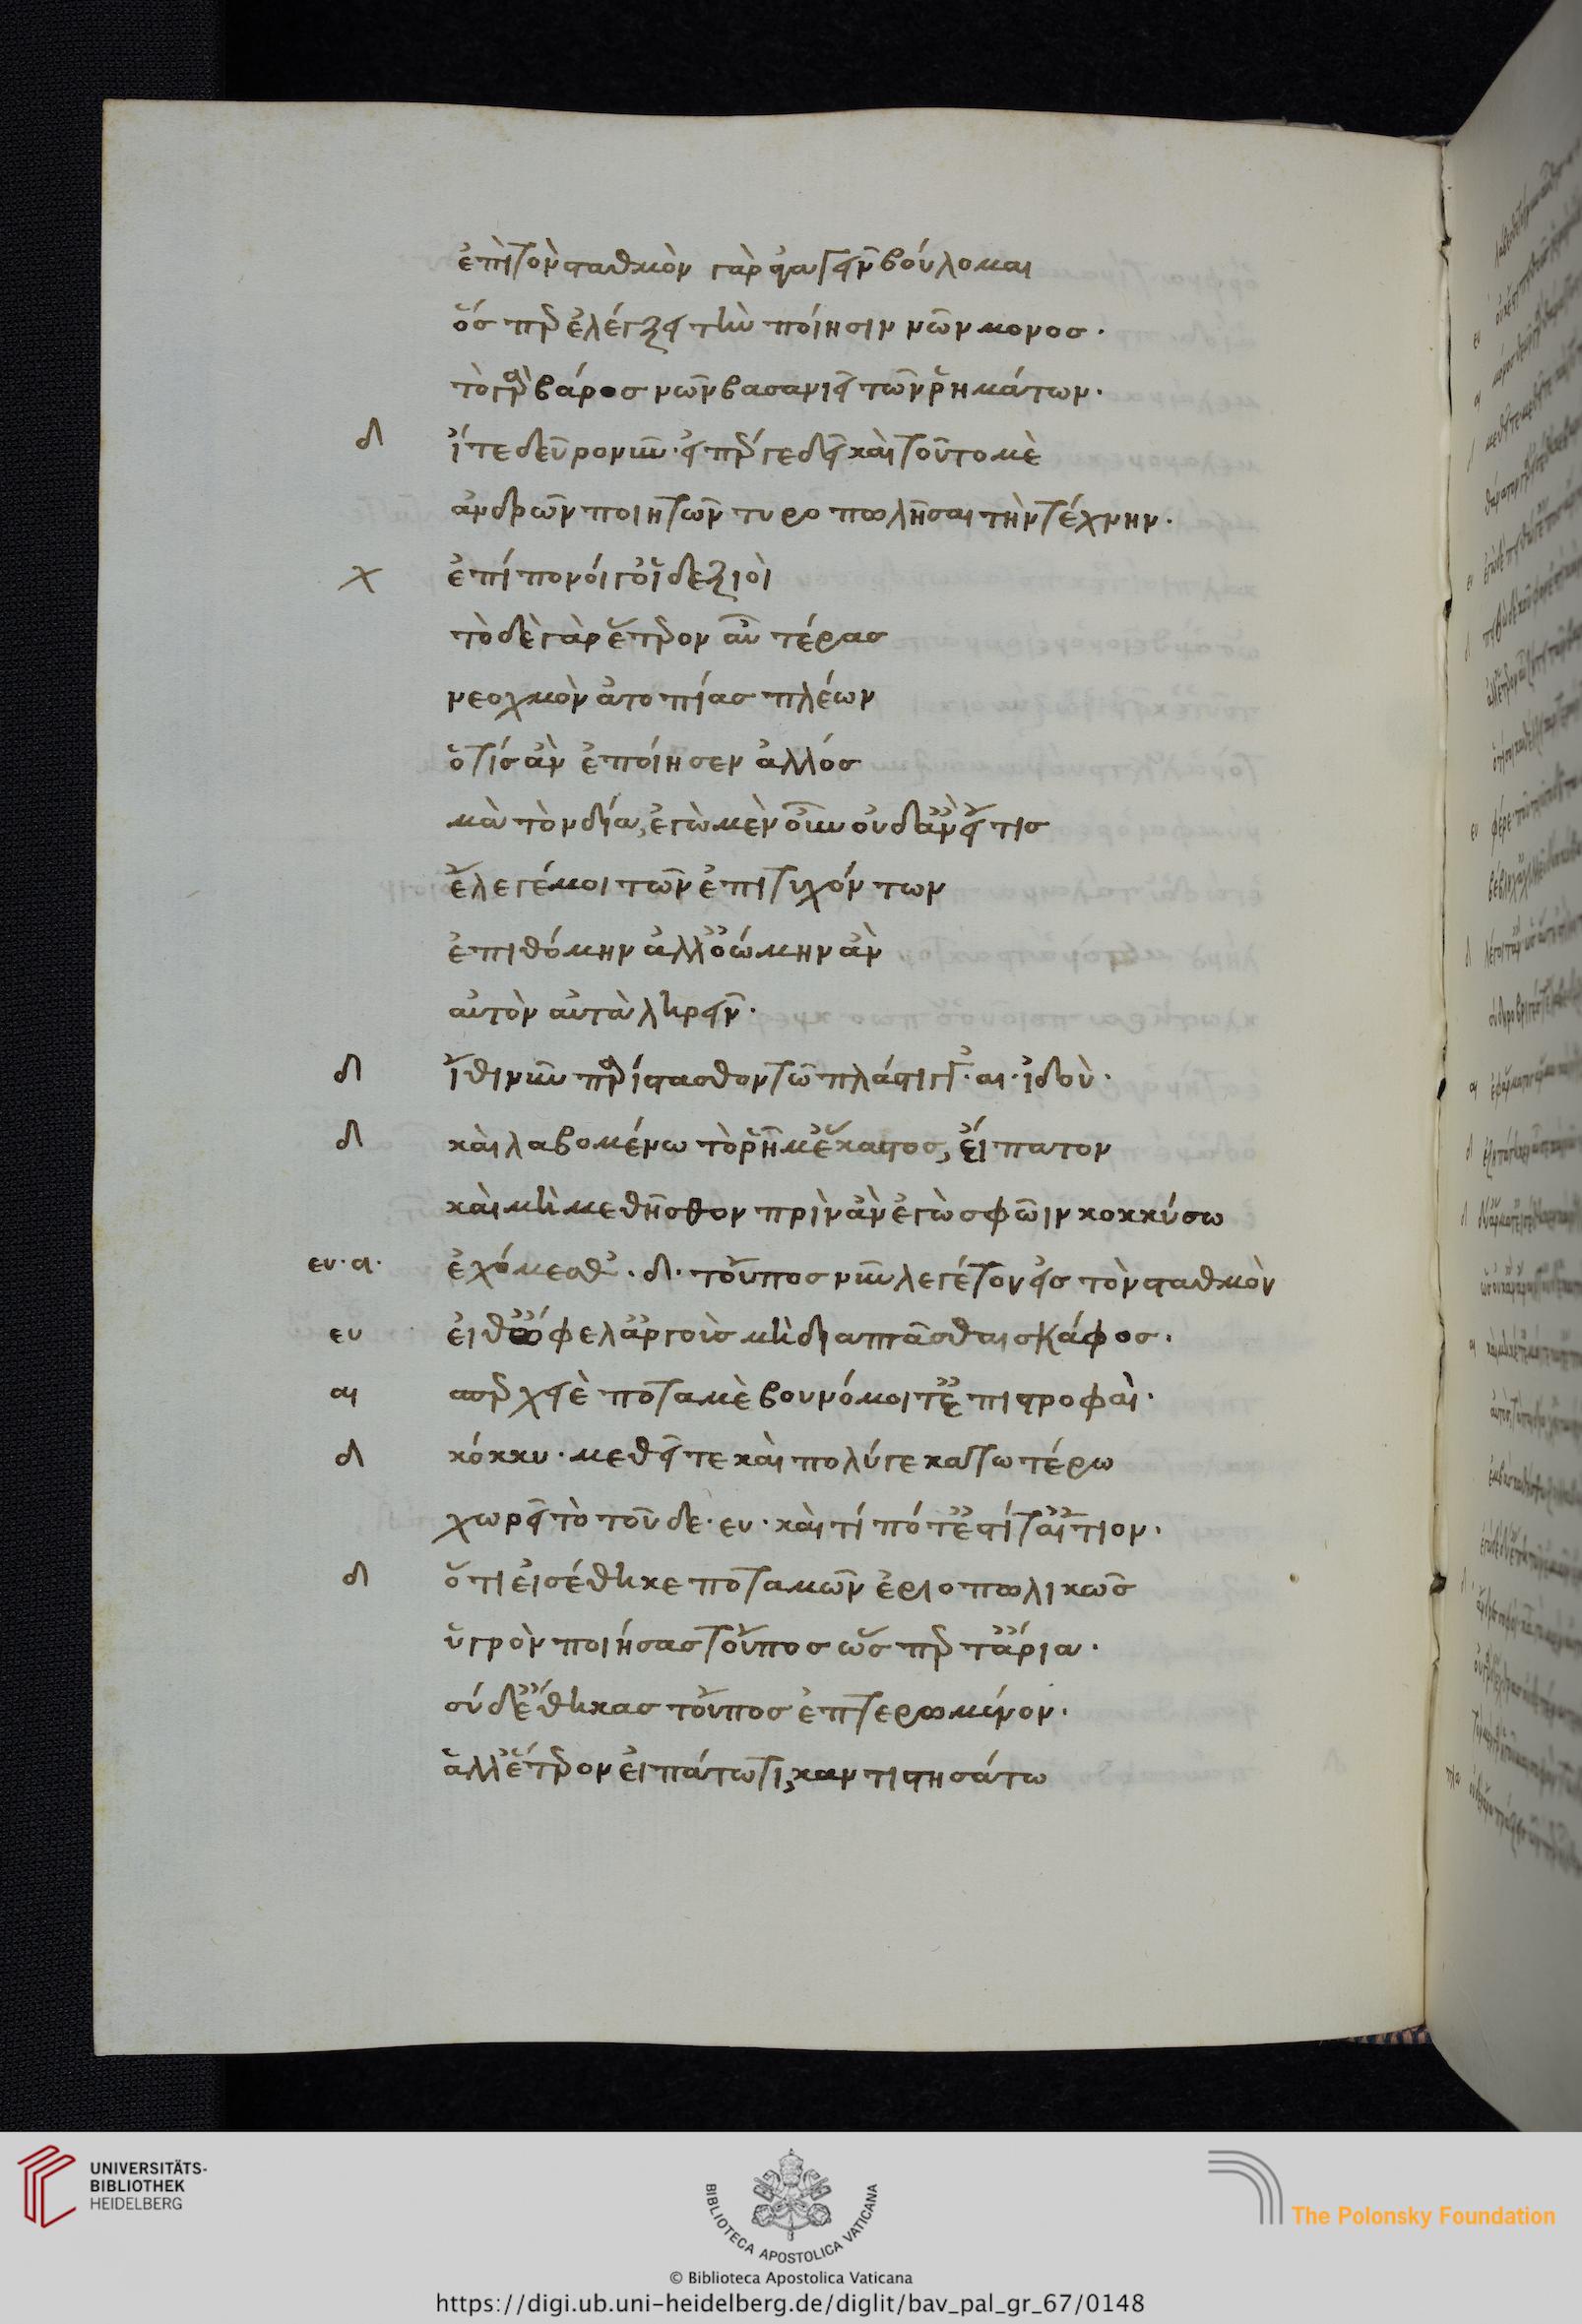 ἐπὶ τὸν σταθμὸν γὰρ αὐτ ἀγαγεῖν βούλομαι
ὅσπερ ἐλέγξει τὴν ποίησιν νῶν μονος·
τὸ γὰρ βάρος νῶν βασανιεῖ τῶν ῥημάτων·
δι ἴτε δεῦρο νῦν· εἴπερ γε δεῖ καὶ τοῦτο μὲ
ἀνδρῶν ποιητῶν τυροπωλῆσαι τὴν τέχνην·
χ ἐπίπονοί γ' οἱ δεξιοὶ
τὸ δὲ γὰρ ἕτερον αὖ τέρας
νεοχμὸν ἀτοπίας πλέων
ὃ τίς ἂν ἐπόίησεν ἀλλός
μὰ τὸν δία, ἐγὼ μὲν οὖν οὐδ' ἂν εἴ τις
ἔλεγέ μοι τῶν ἐπιτυχόντων
ἐπιθόμην ἀλλ' ὠόμην ἂν
αὐτὸν αὐτὰ ληρεῖν·
δι ἴθι νῦν παρίστασθον τῶ πλάστιγγ'· αι· ἰδού·
δι καὶ λαβομένω τὸ ῥῆμ' ἕκαστος, εἴπατον
καὶ μὴ μεθῆσθον πρὶν ἂν ἐγὼ σφῶιν κοκκύσω
ευ· αι· ἐχόμεσθ'· δι· τοὖπος νῦν λεγέτον εἰς τὸν σταθμὸν
ευ εἴθ' ὤφελ' ἀργοῦς μὴ διαπτᾶσθαι σκάφος·
αι σπερχειὲ ποταμὲ βουνόμοι τ' ἐπιστροφαὶ·
δι κόκκυ· μεθεῖτε καὶ πολύ γε κατωτέρω
χωρεῖ τὸ τοῦδε· ευ· καὶ τί πότ' ἐστὶ τ' αἴτιον·
δι ὅτι εἰσέθηκε ποταμῶν ἐριοπωλικῶς
ὑγρὸν ποιήσας τοὖπος ὥσπερ τ' ἄρια·
σύ δ' ἔθηκας τοὖπος ἐπτερωμένον·
ἀλλ' ἕτερον εἰπάτω τι, καντιστησάτω
UNIVERSITÄTS-
BIBLIOTHEK
HEIDELBERG
BIBLIOTECA APOSTOLICA VATICANA
The Polonsky Foundation
© Biblioteca Apostolica Vaticana
https://digi.ub.uni-heidelberg.de/diglit/bav_pal_gr_67/0148